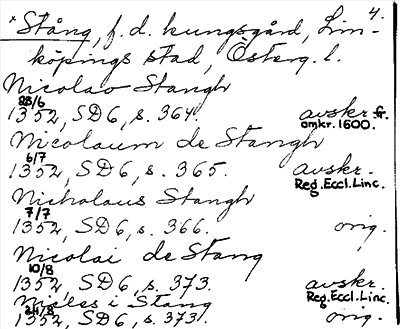 4.
*Stång, f.d. kungsgård, Lin-
köpings stad, Österg. l.
Nicolao Stangh
28/6
1352, SD 6, s. 364. avskr. fr.
omkr. 1600.
Nicolaum de Stangh
6/7
1352, SD 6, s. 365. avskr.
Reg. Eccl. Linc.
Nicholaus Stangh
7/7
1352, SD 6, s. 366. orig.
Nicolai de Stang
10/8
1352, SD 6, s. 373. avskr.
Reg. Eccl. Linc.
i Stang
1352, SD 6, s. 373. orig.